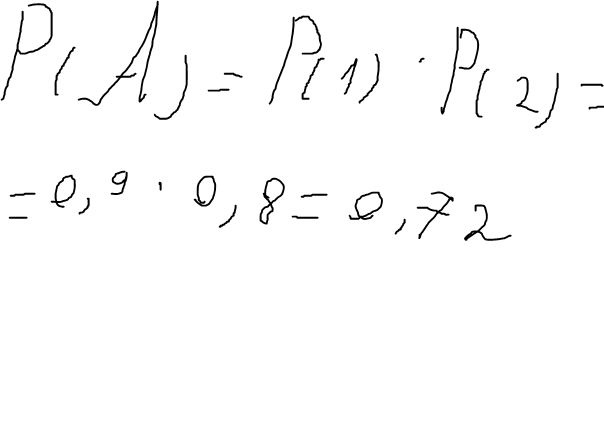 P(A) = P(1) · P(2) =
= 0,9 · 0,8 = 0,72